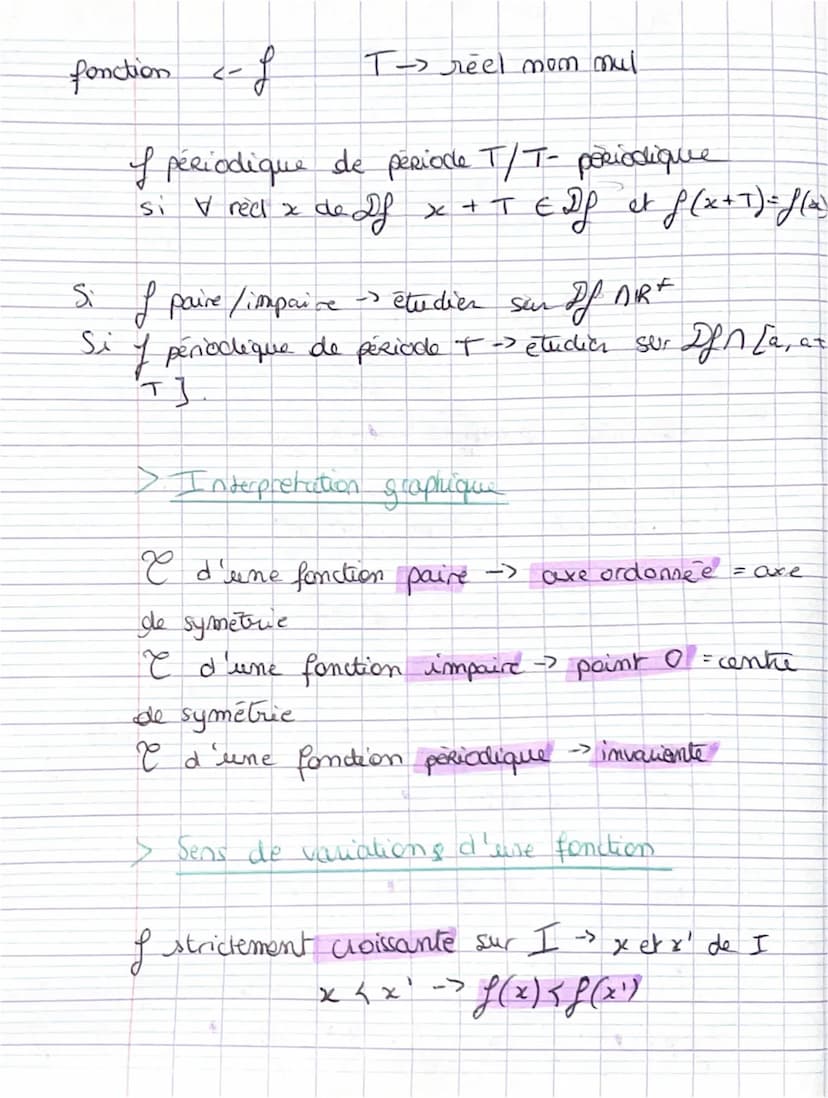 fonction <- f T -> réel non nul
f périodique de période T/T- périodique
si ∀ réel x de Df x + T ∈ Df et f(x+T)=f(x)
Si f paire/impaire -> étudier sur Df ∩ R+
Si f périodique de période T -> étudier sur Df ∩ [a, a+
T].
> Interpretation graphique
C d'une fonction paire -> axe ordonnée = axe
de symétrie
C d'une fonction impaire -> point O = centre
de symétrie
C d'une fonction périodique -> invariente
> Sens de variations d'une fonction
f strictement croissante sur I -> x et x' de I
x < x' -> f(x) < f(x')